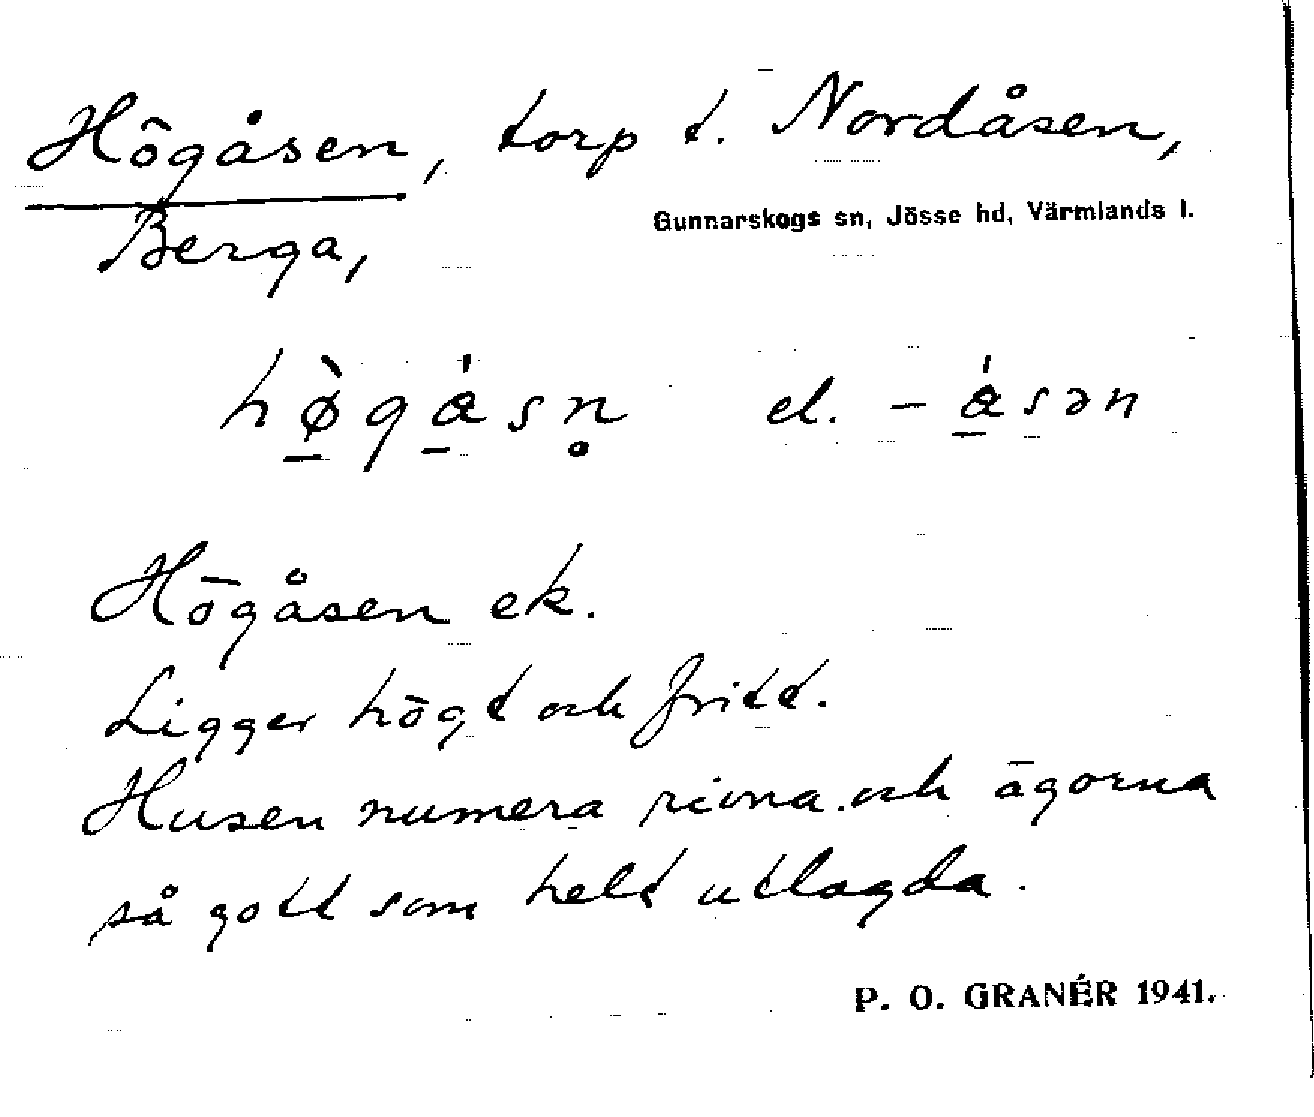 Högåsen, torp t. Nordåsen,
Gunnarskogs sn, Jösse hd, Värmlands l.
Berga,
hø̠̀gǻ̠sn̥ el. -ǻ̠sən
Högåsen ek.
Ligger högt och fritt.
Husen numera rivna och ägorna
så gott som helt utlagda.
P. O. GRANÉR 1941.